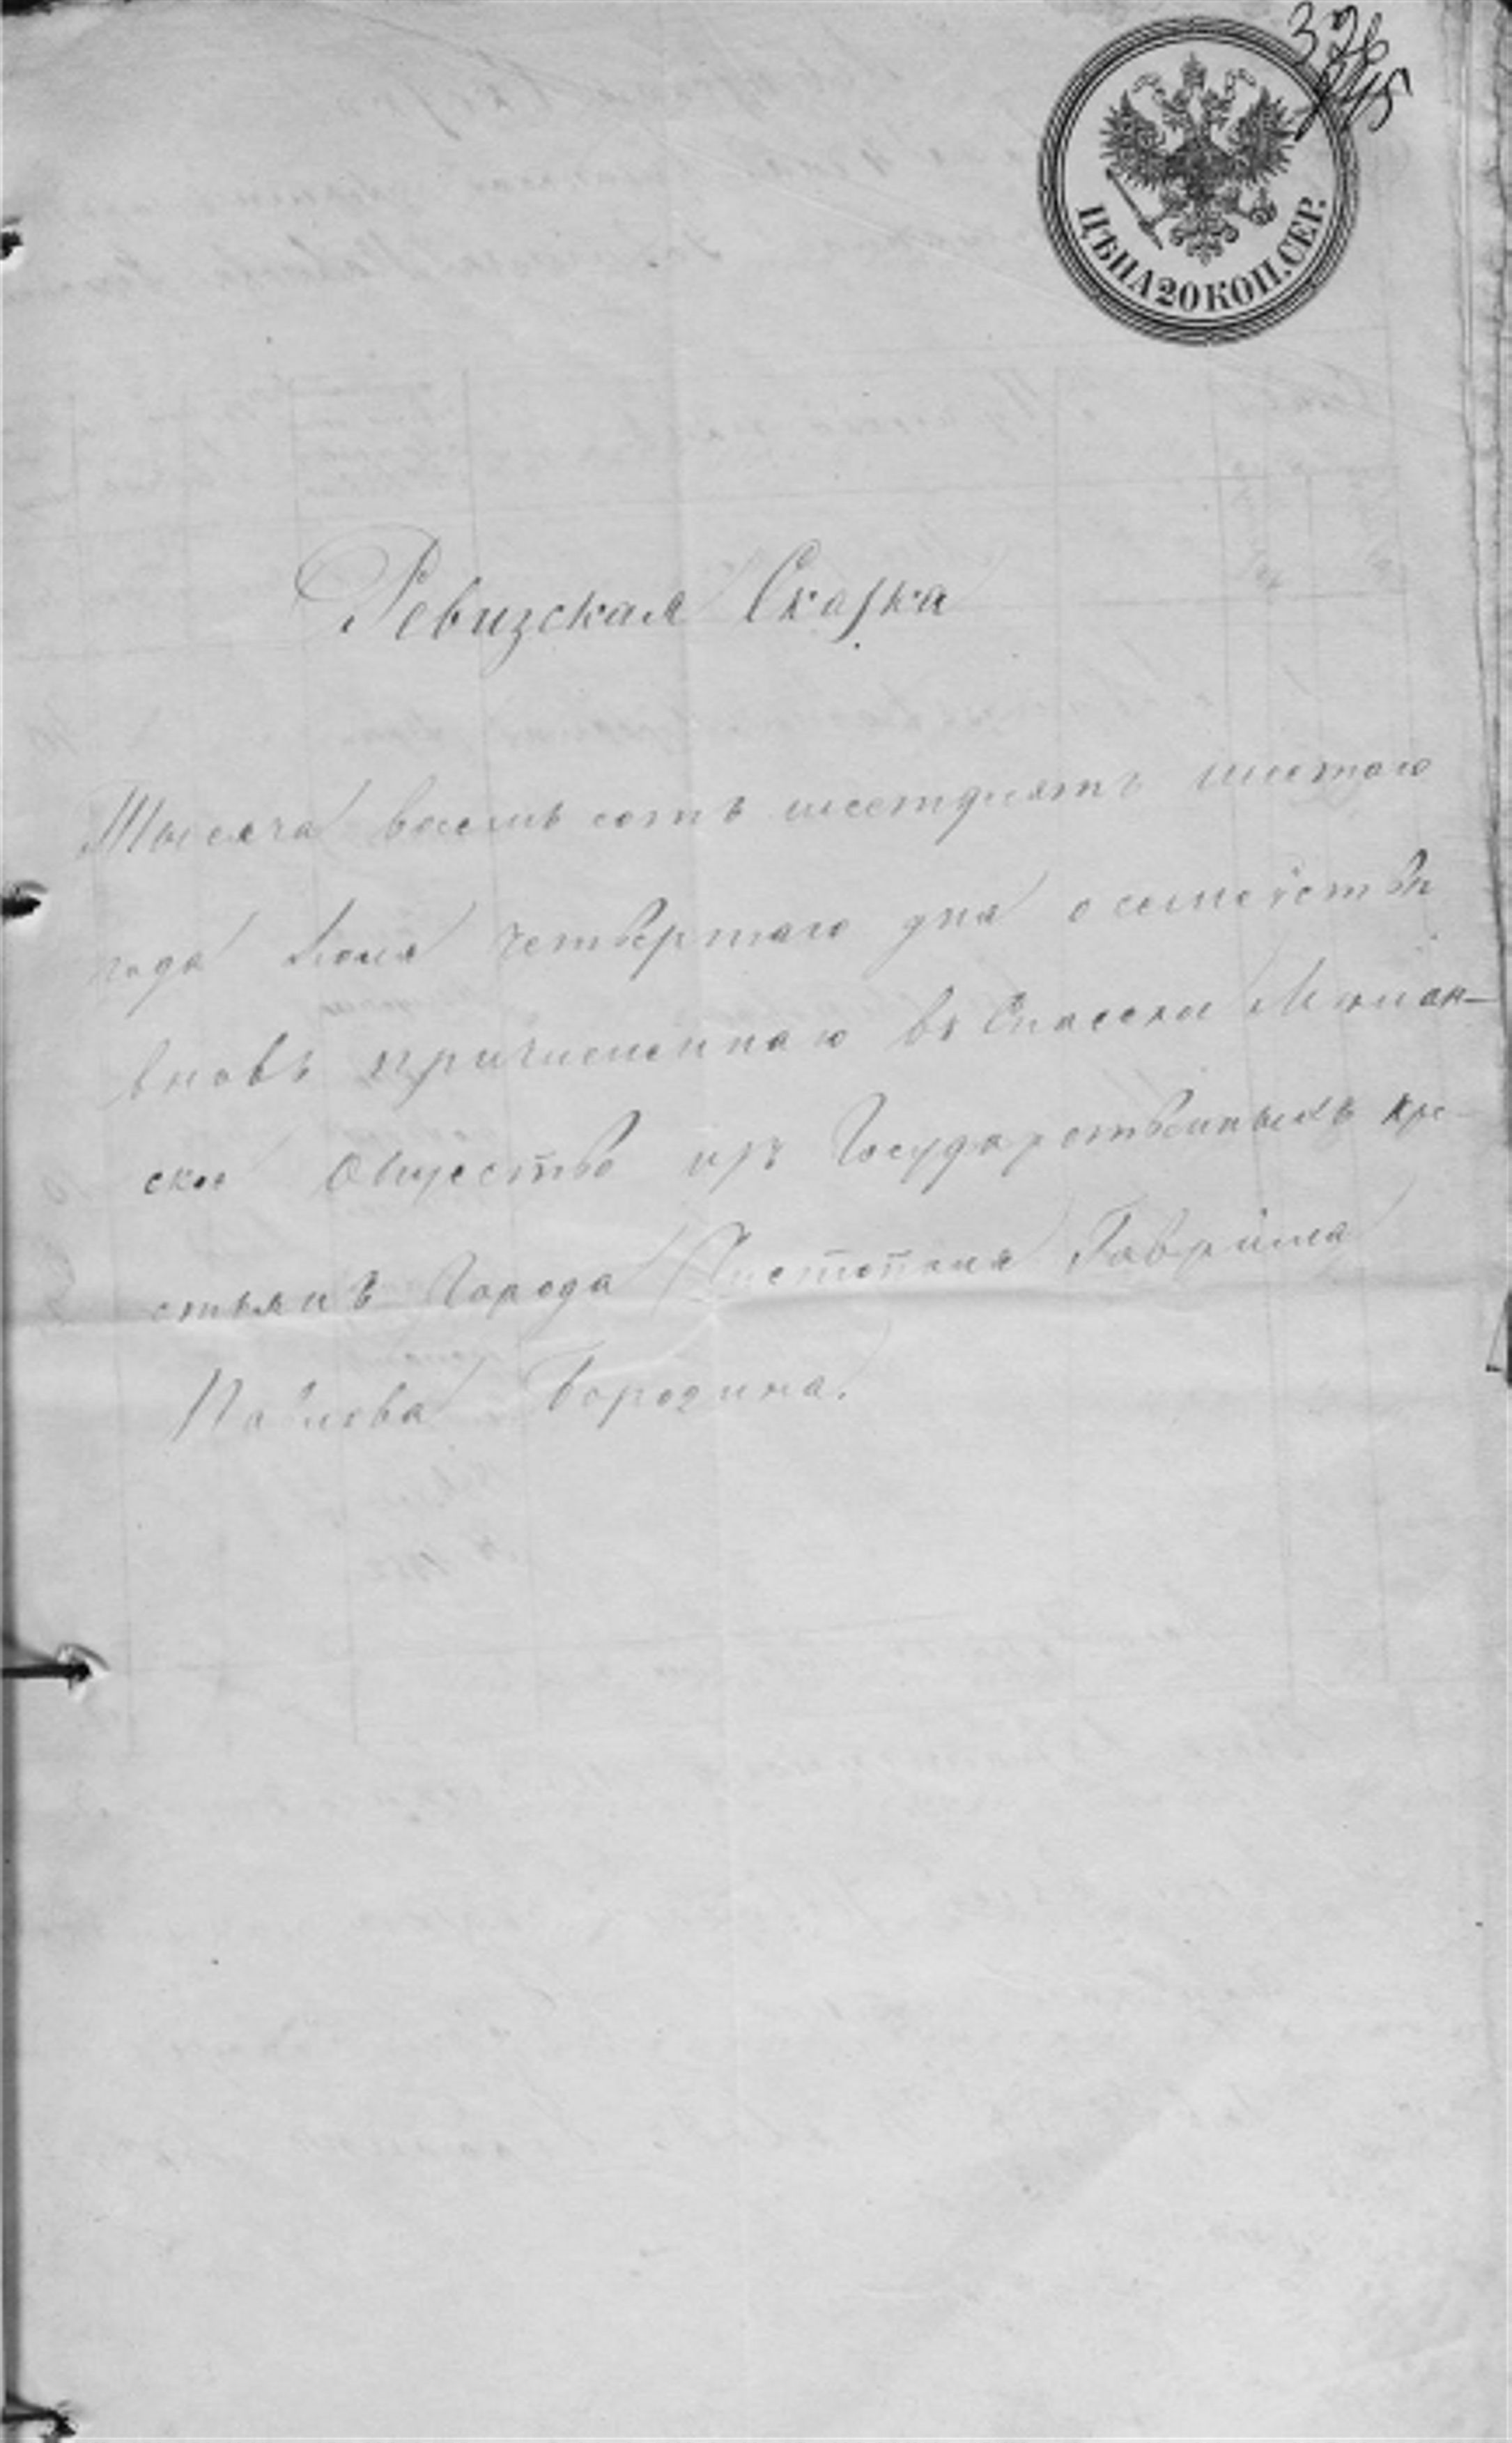 326
ЦѢНА 20 КОП. СЕР.
Ревизская Сказка
Тысяча восемь сотъ шестдиятъ шестаго
года Іюля четвертаго дня о семействѣ
вновь причисленнаго въ Спасское Мѣщан-
ское Общество изъ Государственныхъ кре-
стьянъ города Чистополя Гаврила
Павлова Бородина.